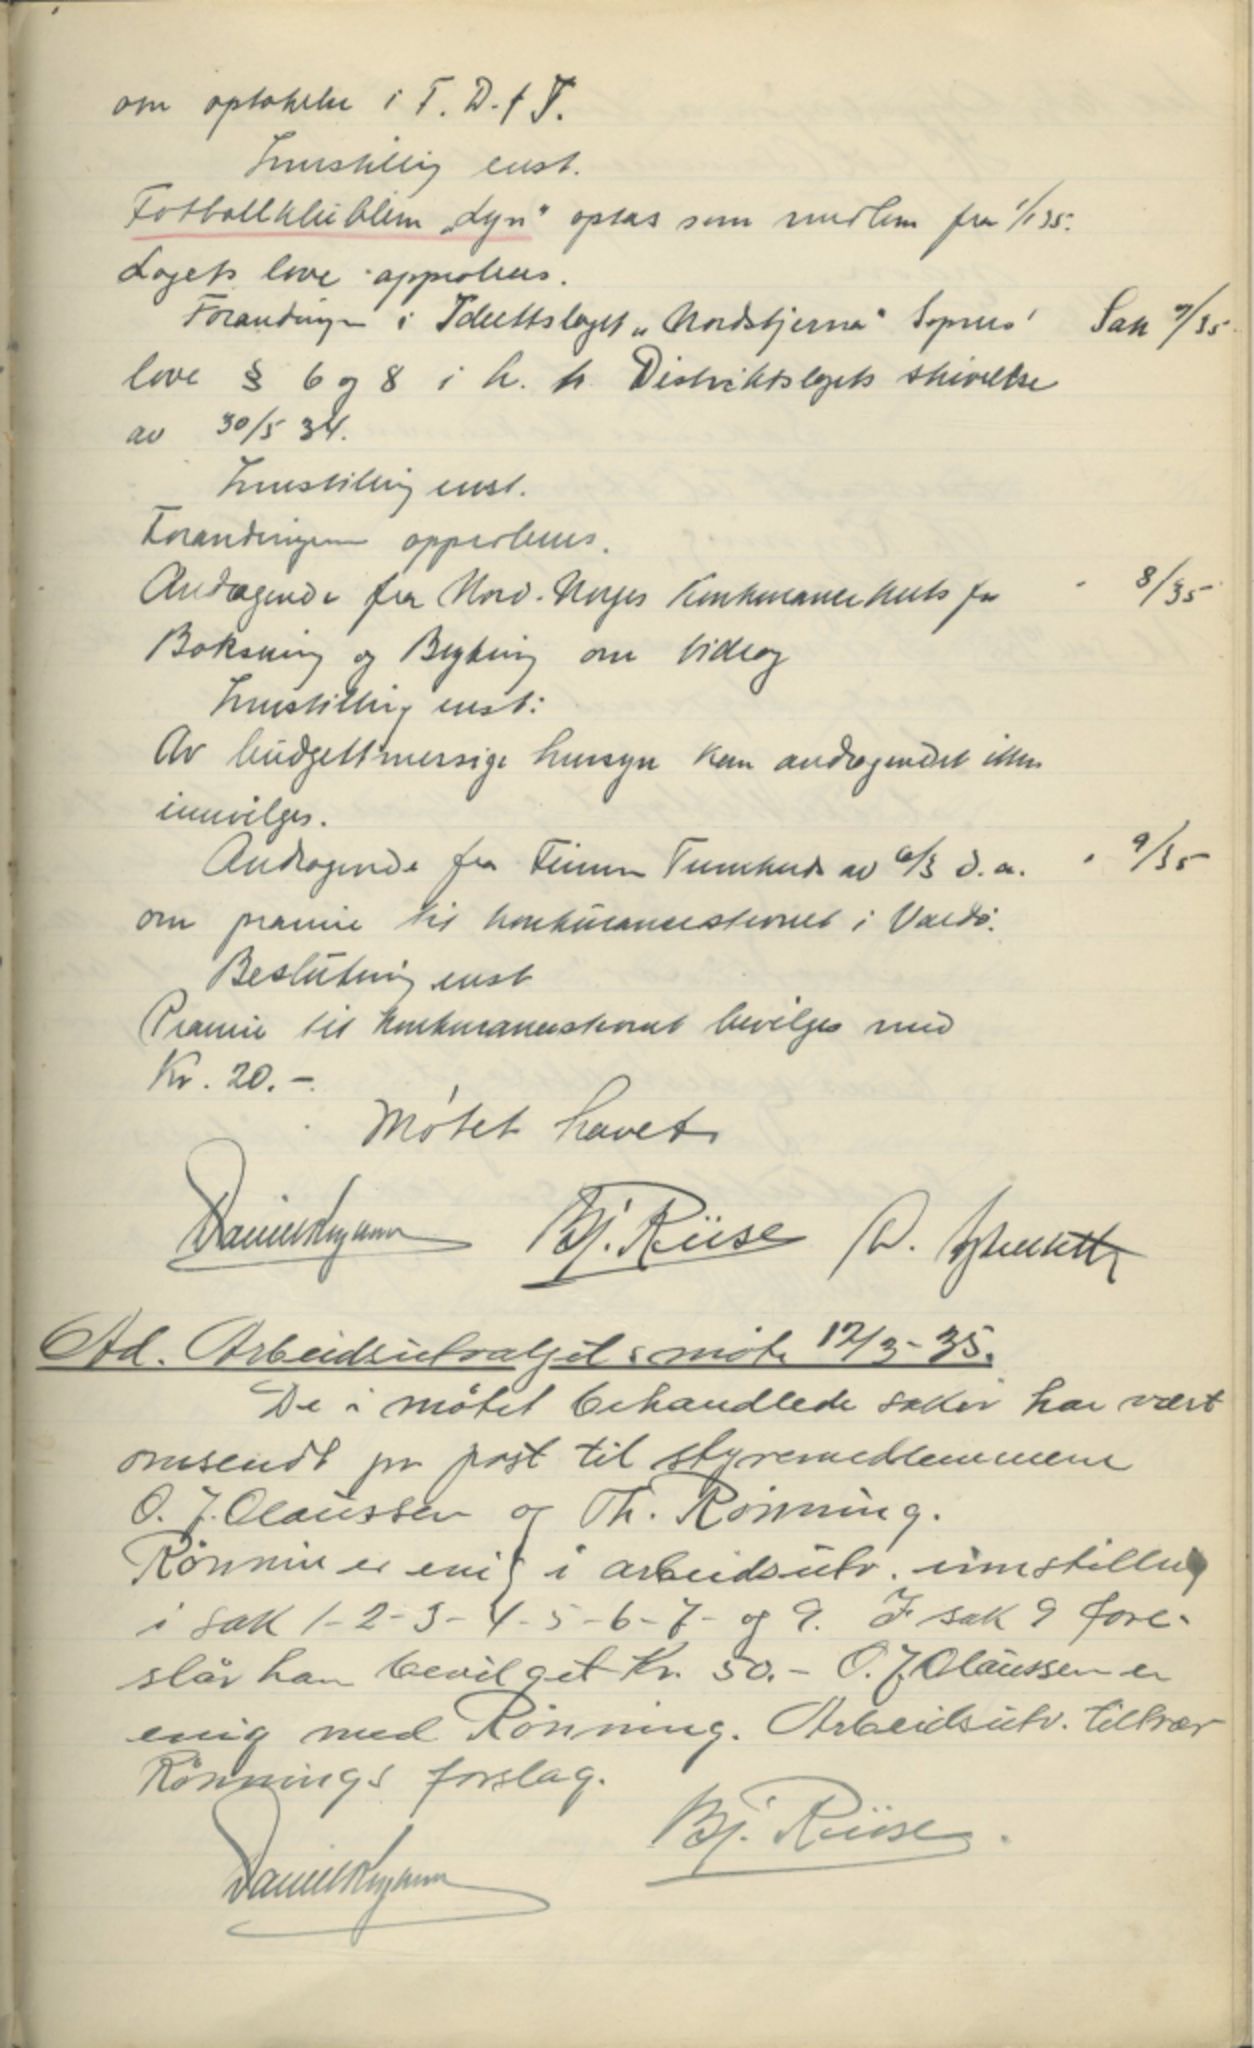 om optakelse i T. D. f F.
Innstilling enst.
Fotballklubben „Lyn" optas som medlem fra 1/1 35.
Lagets love approberes.
Forandringer i Idrettslaget „Nordstjerna" Sopnes' Sak 7/35
love § 6 og 8 i h. t. Distriktslagets skrivelse
av 30/5 34.
Innstilling enst.
Forandringene approberes.
Andragende fra Nord-Norges Konkurransekrets for " 8/35
Boksning og Bryting om bidrag
Innstilling enst:
Av budgettmessige hensyn kan andragendet ikke
innvilges.
Andragende fra Finnm Turnkrets av 6/3 d. a. " 9/35
om premie til konkurransestevnet i Vardø.
Beslutning enst
Premie til konkurransestevnet bevilges med
Kr. 20.-
Møtet hevet
Bj. Riise
Ad. Arbeidsutvalgets møte 12/3-35.
De i møtet behandlede saker har vært
omsendt pr post til styremedlemmene
O. J. Olaussen og Th. Rønning.
Rønnin er enig i arbeidsutv. innstilling
i sak 1-2-3-4-5-6-7- og 9. I sak 9 fore-
slår han bevilget Kr. 50.- O. J. Olaussen er
enig med Rønning. Arbeidsutv. tiltrær
Rønnings forslag.
Bj. Riise